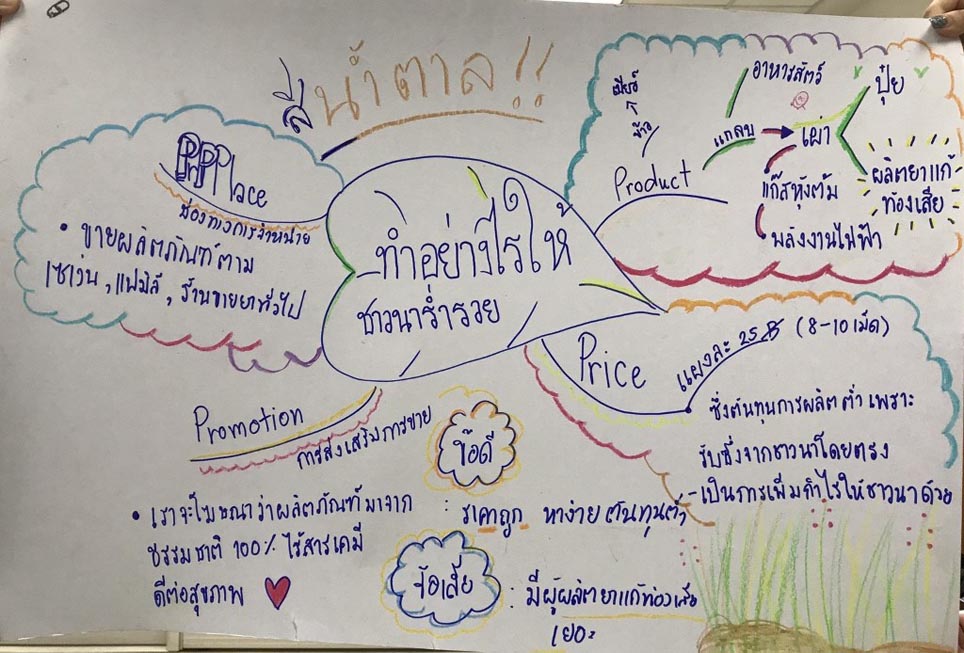 สีน้ำตาล!!
ทำอย่างไรให้
ชาวนาร่ำรวย
Place
ช่องทางการจำหน่าย
• ขายผลิตภัณฑ์ตาม
เซเว่น, แฟมิลี่, ร้านขายยาทั่วไป
Product
ข้าว
เบียร์
แกลบ
อาหารสัตว์
เผา
ปุ๋ย
ผลิตยาแก้
ท้องเสีย
แก๊สหุงต้ม
พลังงานไฟฟ้า
Price
แผงละ 25 ฿ (8-10 เม็ด)
ซึ่งต้นทุนการผลิตต่ำ เพราะ
รับซื้อจากชาวนาโดยตรง
- เป็นการเพิ่มกำไรให้ชาวนาด้วย
Promotion
การส่งเสริมการขาย
• เราจะโฆษณาว่าผลิตภัณฑ์มาจาก
ธรรมชาติ 100% ไร้สารเคมี
ดีต่อสุขภาพ
ข้อดี
: ราคาถูก หาง่าย ต้นทุนต่ำ
ข้อเสีย
: มีผู้ผลิตยาแก้ท้องเสีย
เยอะ